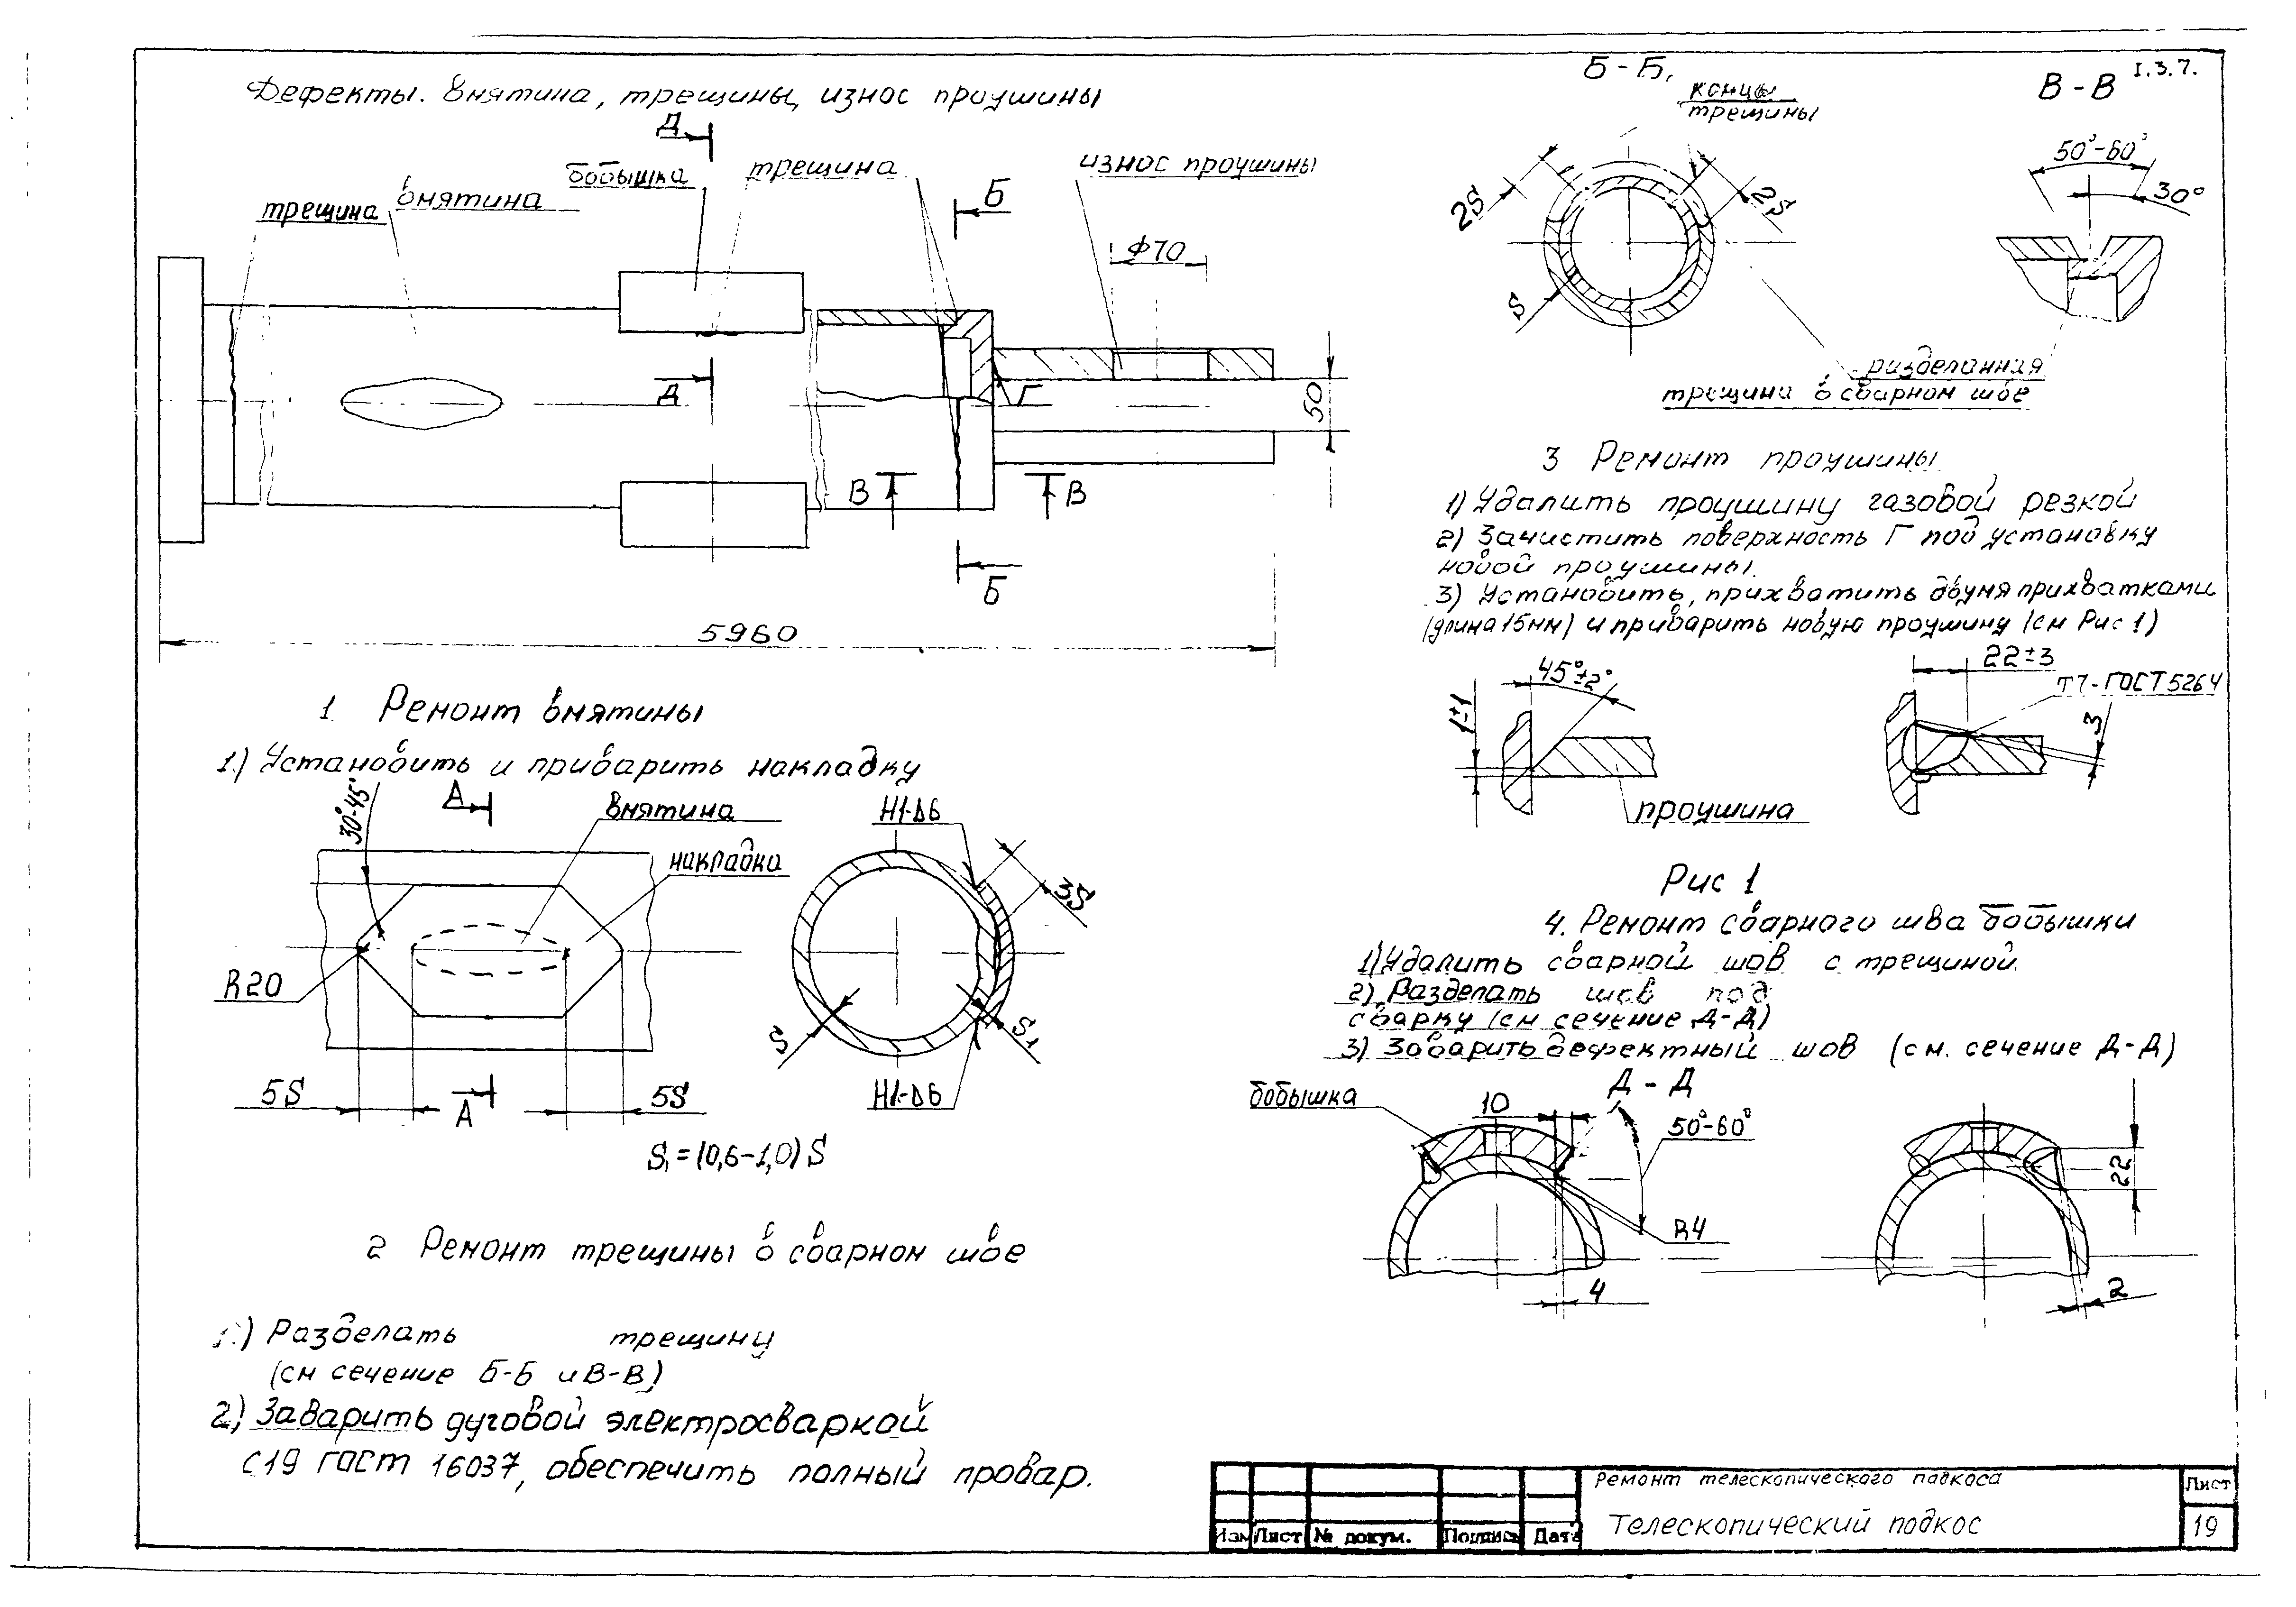 I.3.7.
Дефекты. Внятина, трещины, износ проушины
Д
трещина
внятина
бобышка
трещина
Б
износ проушины
Ф70
Д
Г
50
В
В
Б
5960
1. Ремонт внятины
1.) Установить и приварить накладку
30°-45°
А
внятина
накладка
R20
5S
А
5S
Н1-Δ6
3S
S
S₁
Н1-Δ6
S₁=(0,6-1,0)S
2 Ремонт трещины в сварном шве
1.) Разделать трещину
(см сечение Б-Б и В-В)
2) Заварить дуговой электросваркой
С19 ГОСТ 16037, обеспечить полный провар.
Б-Б
концы
трещины
2S
2S
S
В-В
50°-60°
30°
разделанная
трещина в сварном шве
3 Ремонт проушины
1) Удалить проушину газовой резкой
2) Зачистить поверхность Г под установку
новой проушины.
3) Установить, прихватить двумя прихватками
(длина 15мм) и приварить новую проушину (см Рис 1)
45°±2°
1±1
проушина
22±3
Т7-ГОСТ 5264
3
Рис 1
4. Ремонт сварного шва бобышки
1) Удалить сварной шов с трещиной.
2) Разделать шов под
сварку (см сечение Д-Д)
3) Заварить дефектный шов (см. сечение Д-Д)
Д-Д
бобышка
10
50°-60°
R4
4
22
2
Изм Лист № докум. Подпись Дата
Ремонт телескопического подкоса
Телескопический подкос
Лист
19